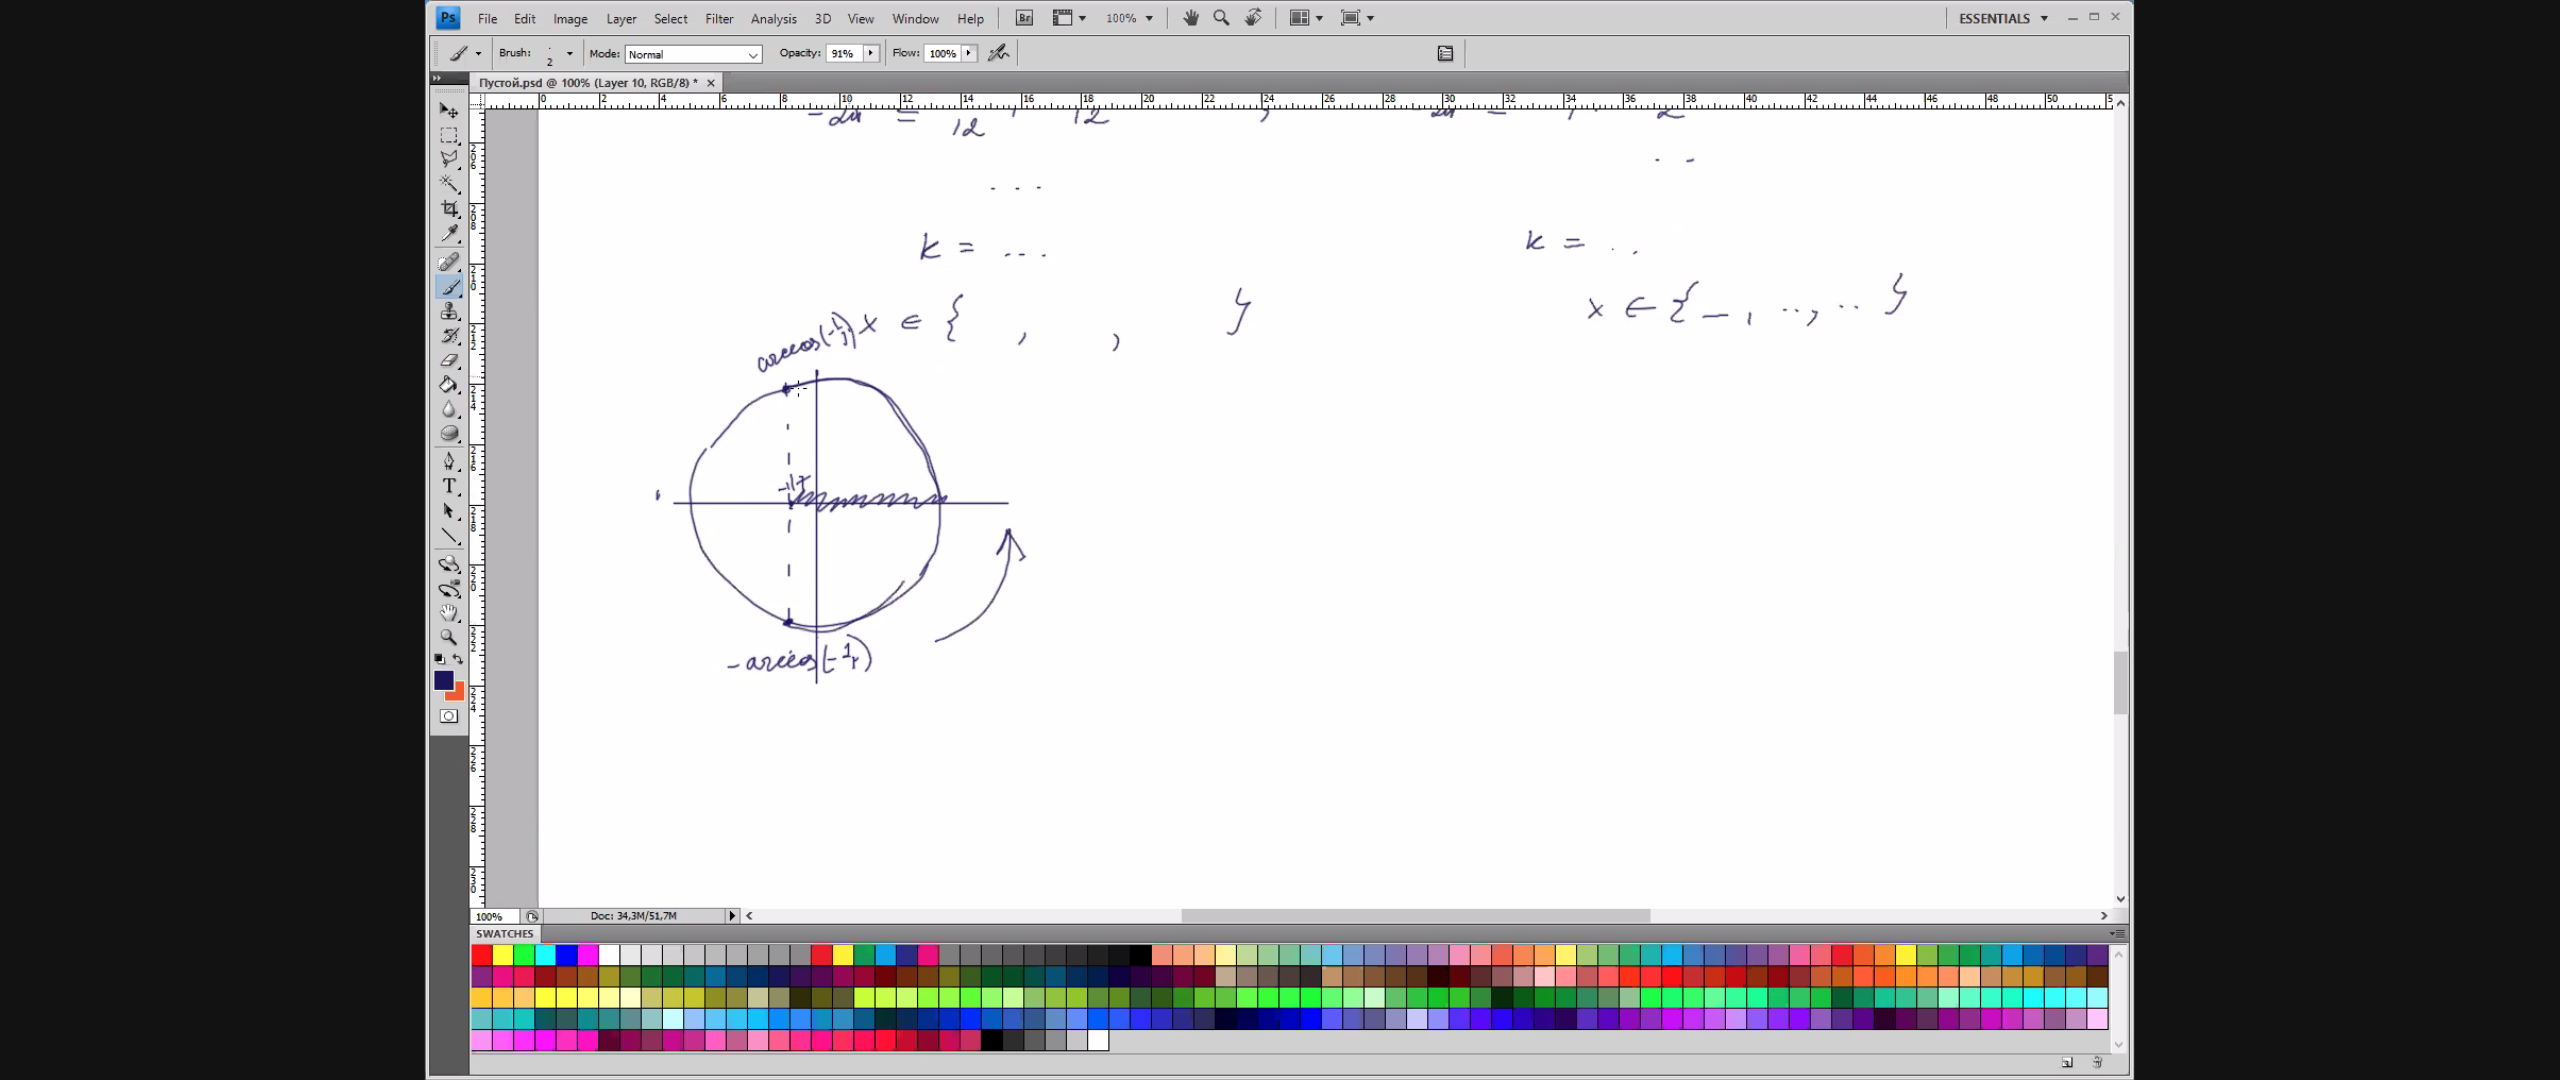 Ps File Edit Image Layer Select Filter Analysis 3D View Window Help Br 100% ESSENTIALS
Brush: 2 Mode: Normal Opacity: 91% Flow: 100%
Пустой.psd @ 100% (Layer 10, RGB/8) *
0 2 4 6 8 10 12 14 16 18 20 22 24 26 28 30 32 34 36 38 40 42 44 46 48 50
12 12 2
...
k = ... k = ..
x ∈ { , , } x ∈ { _ , .., .. }
100% Doc: 34,3M/51,7M
SWATCHES